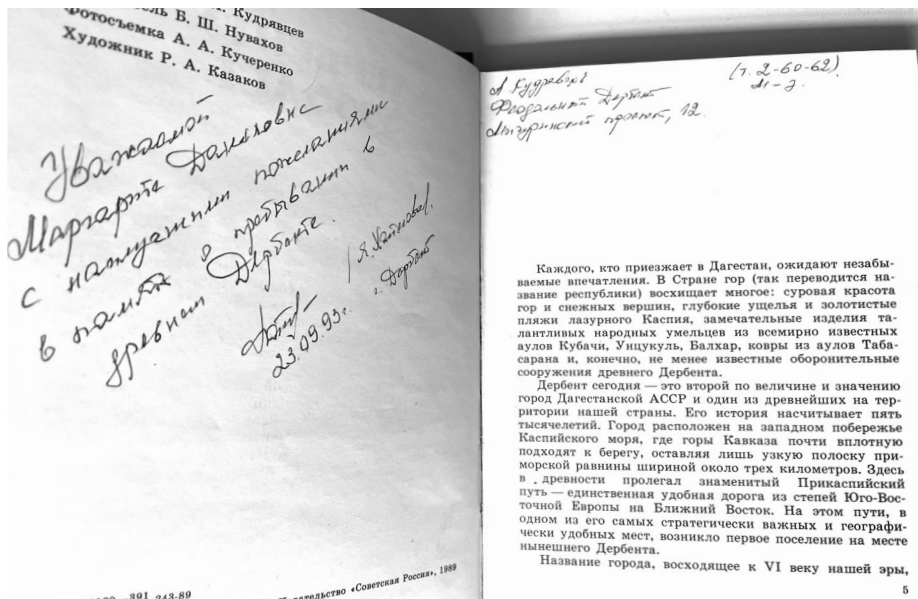 Кудрявцев
Б. Ш. Нувахов
Фотосъемка А. А. Кучеренко
Художник Р. А. Казаков
Уважаемой
Маргарите Даниловне
с наилучшими пожеланиями
в память о пребывании в
древнем Дербенте.
23.09.93г.
г. Дербент
391
243-89
Издательство «Советская Россия», 1989
А. Кудрявцев
(т. 2-60-62)
Феодальный Дербент
Мичуринский проспект, 12.
Каждого, кто приезжает в Дагестан, ожидают незабы-
ваемые впечатления. В Стране гор (так переводится на-
звание республики) восхищает многое: суровая красота
гор и снежных вершин, глубокие ущелья и золотистые
пляжи лазурного Каспия, замечательные изделия та-
лантливых народных умельцев из всемирно известных
аулов Кубачи, Унцукуль, Балхар, ковры из аулов Таба-
сарана и, конечно, не менее известные оборонительные
сооружения древнего Дербента.
Дербент сегодня — это второй по величине и значению
город Дагестанской АССР и один из древнейших на тер-
ритории нашей страны. Его история насчитывает пять
тысячелетий. Город расположен на западном побережье
Каспийского моря, где горы Кавказа почти вплотную
подходят к берегу, оставляя лишь узкую полоску при-
морской равнины шириной около трех километров. Здесь
в древности пролегал знаменитый Прикаспийский
путь — единственная удобная дорога из степей Юго-Вос-
точной Европы на Ближний Восток. На этом пути, в
одном из его самых стратегически важных и географи-
чески удобных мест, возникло первое поселение на месте
нынешнего Дербента.
Название города, восходящее к VI веку нашей эры,
5